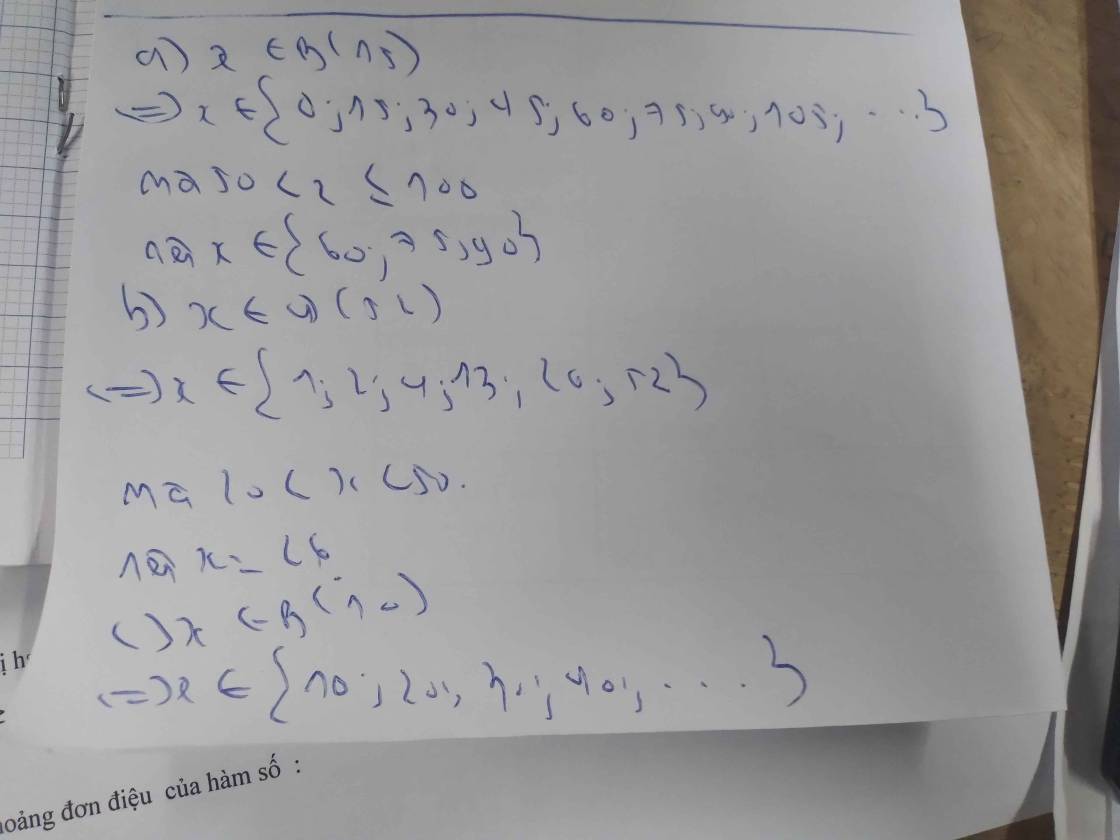 a) x ∈ B(15)
<=> x ∈ {0; 15; 30; 45; 60; 75; 90; 105; ...}
mà 50 < x ≤ 100
nên x ∈ {60; 75; 90}
b) x ∈ Ư(52)
<=> x ∈ {1; 2; 4; 13; 26; 52}
mà 20 < x < 50.
nên x = 26
c) x ∈ B(10)
<=> x ∈ {10; 20; 30; 40; ....}
hoảng đơn điệu của hàm số :